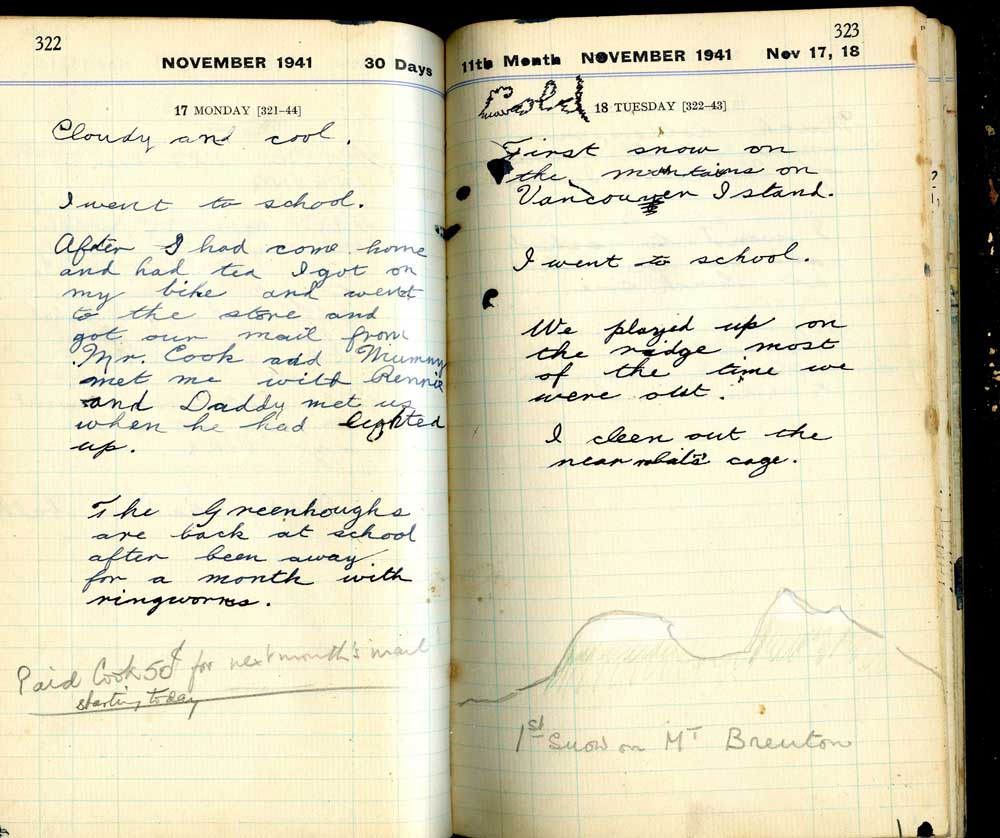 322
NOVEMBER 1941 30 Days
17 MONDAY [321–44]
Cloudy and cool.
I went to school.
After I had come home
and had tea I got on
my bike and went
to the store and
got our mail from
Mr. Cook and Mummy
met me with Rennie
and Daddy met us
when he had lighted
up.
The Greenhoughs
are back at school
after been away
for a month with
ringworms.
Paid Cook 50¢ for next month's mail
starting today
323
11th Month NOVEMBER 1941 Nov 17, 18
Cold 18 TUESDAY [322–43]
First snow on
the mountains on
Vancouver Island.
I went to school.
We played up on
the ridge most
of the time we
were out.
I cleen out the
near cage.
1st Snow on MT Brenton